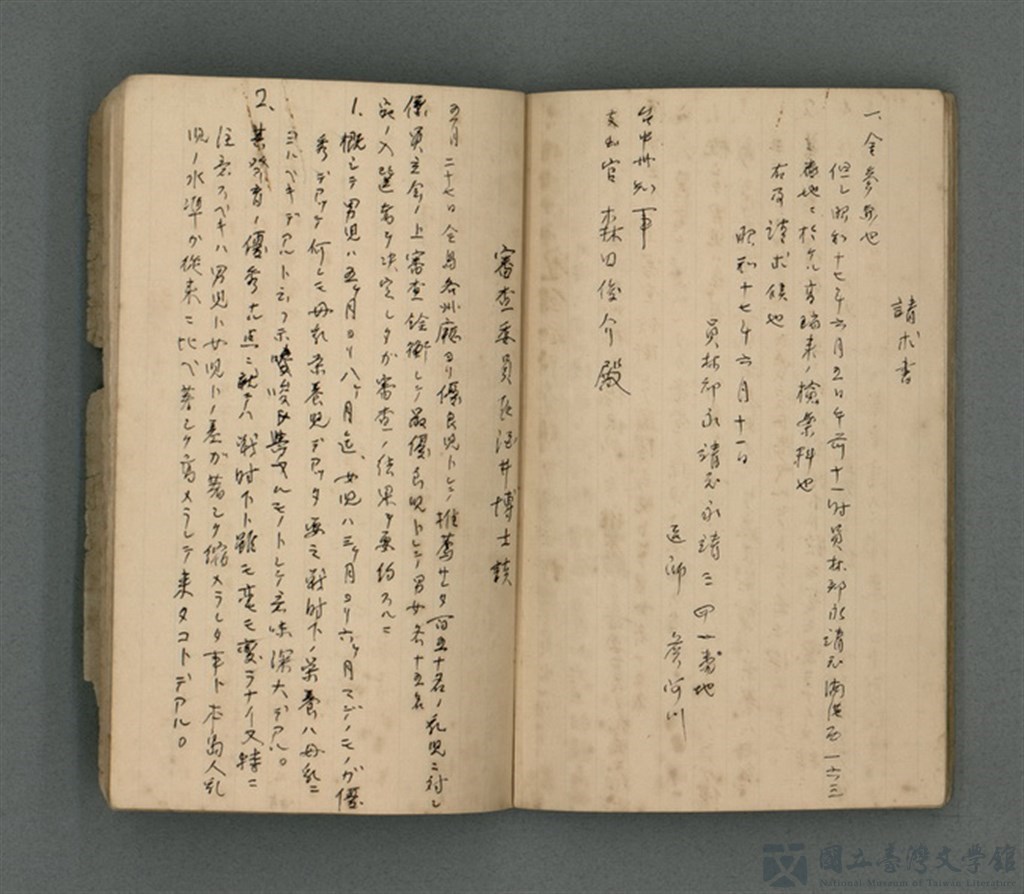 請求書
一、金参円也
但し昭和十七年六月五日午前十一時員林郡永靖庄湳港西一六三
番地ニ於ケル 検案料也
右及請求候也
昭和十七年六月十一日
員林郡永靖庄永靖三四一番地
医師 黄河川
台中州知事
支払官 森田俊介殿
審査委員長酒井博士談
五月二十七日全島各州庁ヨリ優良児トシテ推薦サレタ百五十名ノ乳児ニ対シ
係員立会ノ上審査銓衡シテ最優良児トシテ男女各十五名
宛ノ入選者ヲ決定シタガ審査ノ結果ヲ要約スルニ
1、概シテ男児ハ五ヶ月ヨリ八ヶ月迄、女児ハ三ヶ月ヨリ六ヶ月マデノモノガ優
秀デアッテ何レモ母乳栄養児デアッタ要之戦時下ノ栄養ハ母乳ニ
ヨルベキデアルト云フ示唆ヲ与ヘルモノトシテ意味深大デアル。
2、其発育ノ優秀ナ点ニ就テハ戦時下ト雖モ毫モ変ラナイ又特ニ
注意スベキハ男児ト女児トノ差ガ著シク縮メラレタ事ト本島人乳
児ノ水準ガ従来ニ比ベ著シク高メラレテ来タコトデアル。
國立臺灣文學館
National Museum of Taiwan Literature